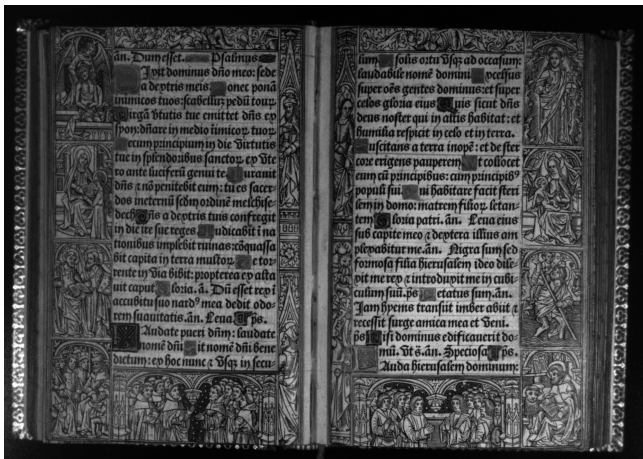 ān. Dum esset. Psalmus
Ixit dominus dño meo: sede
a dextris meis. Donec ponā
inimicos tuos: scabellū pedū tuoꝝ
Virgā v̄tutis tue emittet dñs ex
syon: dñare in medio īimicoꝝ tuoꝝ
Tecum principium in die virtutis
tue in splendoribus sanctoꝝ ex vte
ro ante luciferū genui te Iurauit
dñs & nō penitebit eum: tu es sacer
dos ineternū scḋm ordinē melchise
dech Dñs a dextris tuis confregit
in die ire sue reges. Iudicabit ī na
tionibus implebit ruinas: cōquassa
bit capita in terra multoꝝ De tor
rente in via bibit: propterea exalta
uit caput Gloria. ā. Dū esset rex ī
accubitu suo nardꝰ mea dedit odo
rem suauitatis. ān. Leua. ps.
LAudate pueri dñm: laudate
nomē dñi Sit nomē dñi bene
dictum: ex hoc nunc & vsqꝫ in secu
lum A solis ortu vsqꝫ ad occasum:
laudabile nomē domini Excelsus
super oēs gentes dominus: et super
celos gloria eius Quis sicut dñs
deus noster qui in altis habitat: et
humilia respicit in celo et in terra.
Suscitans a terra inopē: et de ster
core erigens pauperem Ut collocet
eum cū principibus: cum principibꝰ
populi sui. Qui habitare facit steri
lem in domo: matrem filioꝝ letan
tem Gloria patri. ān. Leua eius
sub capite meo & dextera illius am
plexabitur me. ān. Nigra sum sed
formosa filia hierusalem ideo dile
xit me rex & introduxit me in cubi
culum suū. ps Letatus sum. ān.
Iam hyems transiit imber abiit &
recessit surge amica mea et veni.
ps Nisi dominus edificauerit do
mū. vt s̄. ān. Speciosa ps.
LAuda hierusalem dominum: